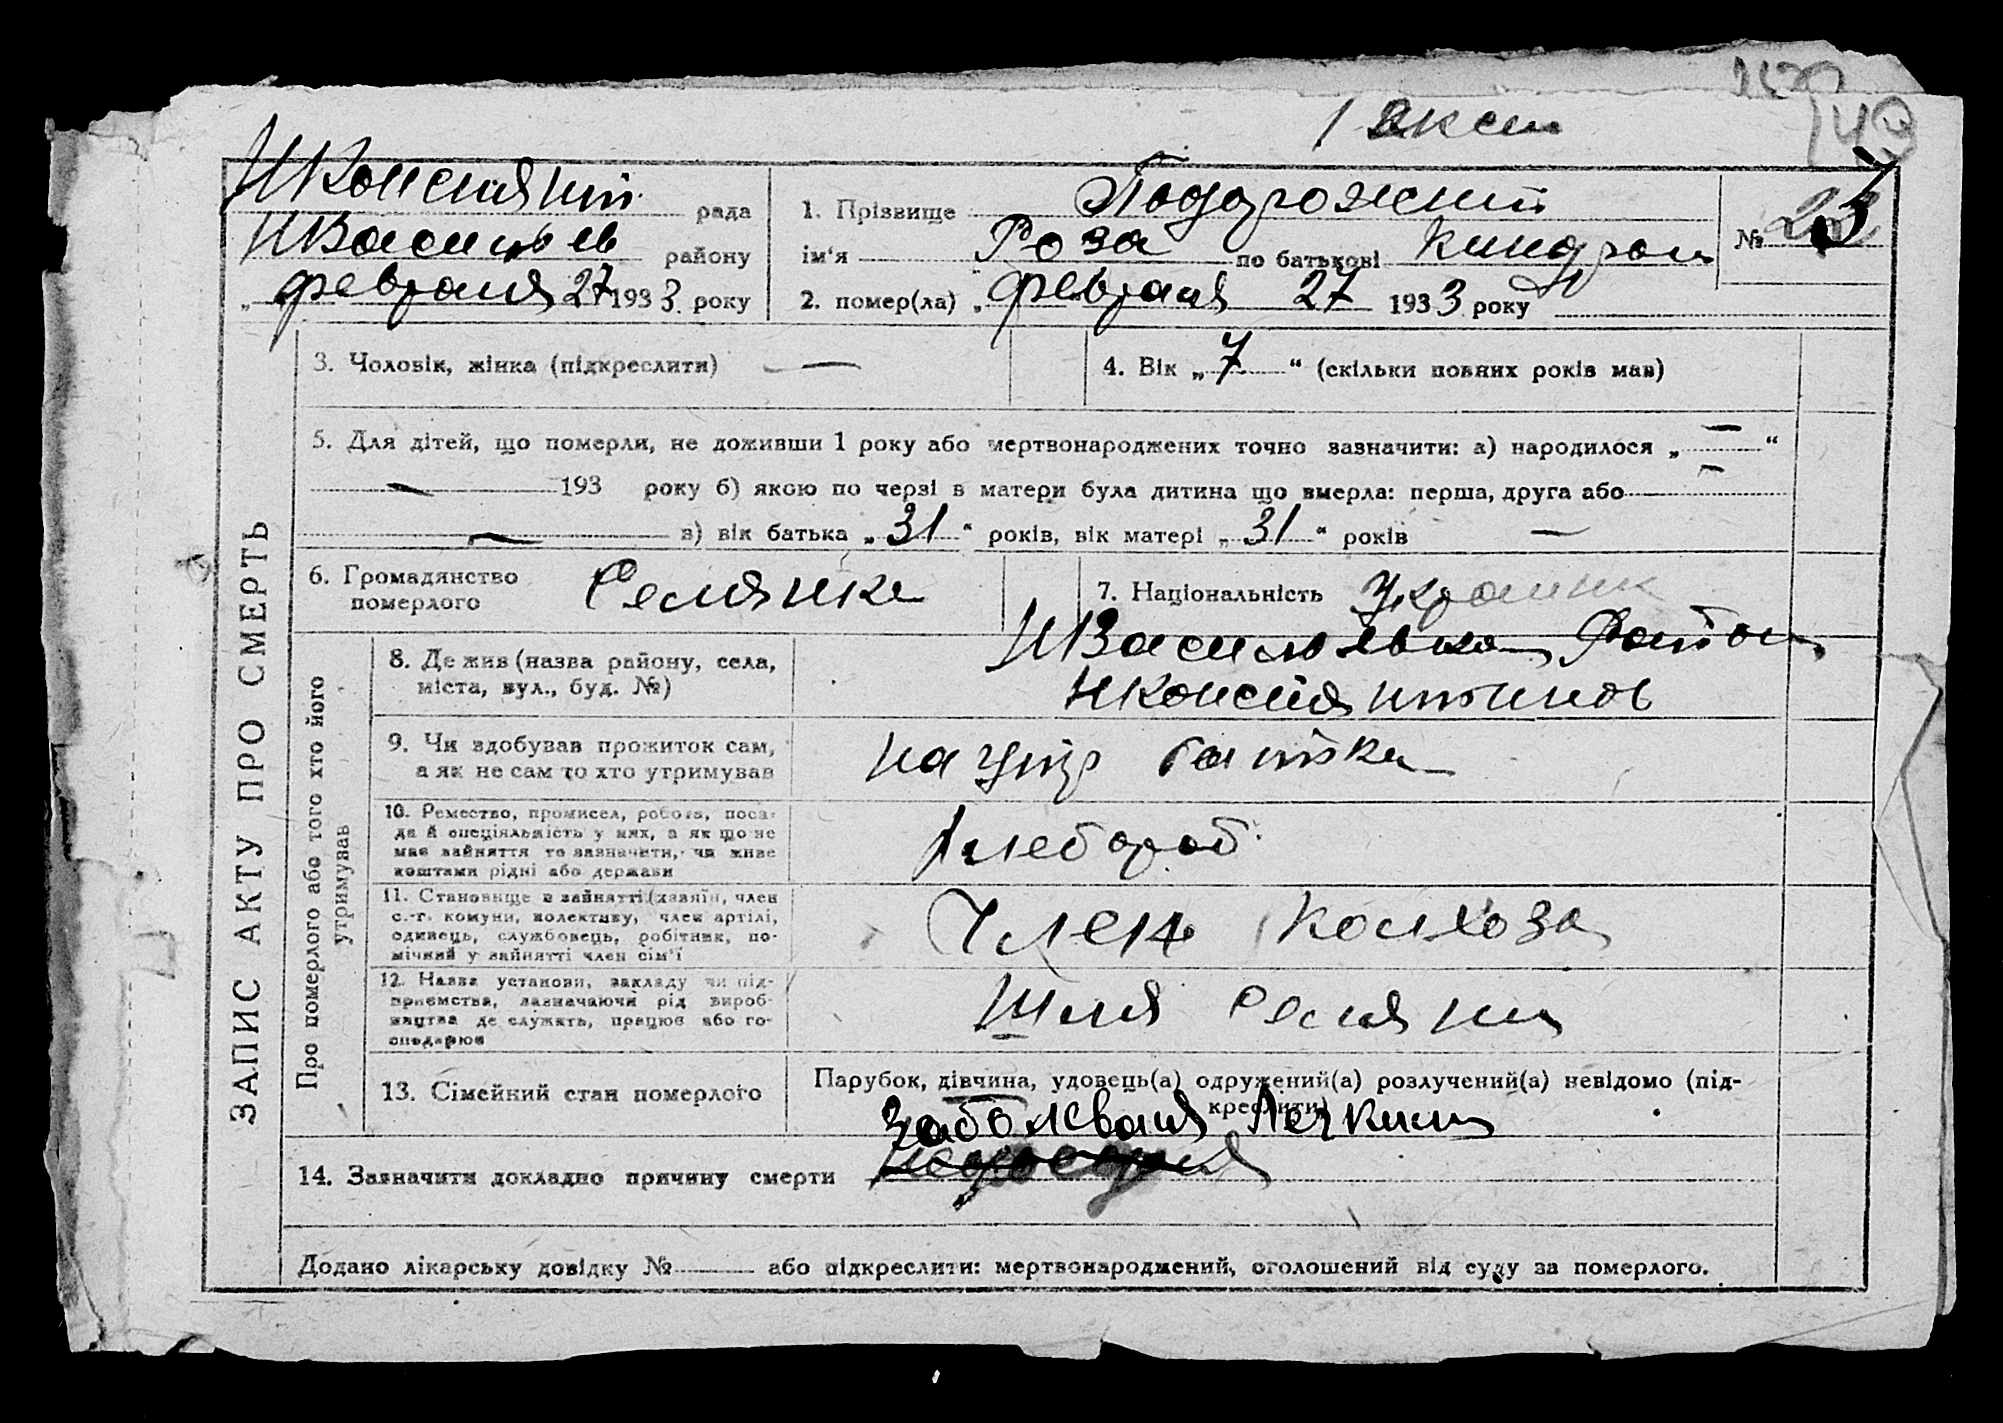 1 экем
140
НКонстянт. рада
НВасильев району
„ февраля 27 1933 року
1. Прізвище Подорожний
ім'я Роза по батькові Киндрат
2. помер(ла) „ февраля 27 1933 року
№ 23
ЗАПИС АКТУ ПРО СМЕРТЬ
3. Чоловік, жінка (підкреслити) —
4. Вік „ 7 “ (скільки повних років мав)
5. Для дітей, що померли, не доживши 1 року або мертвонароджених точно зазначити: а) народилося „ — “
— 193 року б) якою по черзі в матери була дитина що вмерла: перша, друга або —
— в) вік батька „ 31 “ років, вік матері „ 31 “ років —
6. Громадянство
померлого Селянка
7. Національність Украинк
Про померлого або того хто його
утримував
8. Де жив (назва району, села,
міста, вул., буд. №)
НВасильевка Район
НКонстянтинов
9. Чи здобував прожиток сам,
а як не сам то хто утримував
на утр батька
10. Ремество, промисел, робота, поса-
да й спеціяльність у них, а як що не
має зайняття то зазначити, чи живе
коштами рідні або держави
Хлебороб
11. Становище в зайнятті (хазяїн, член
с.-г. комуни, колективу, член артілі,
одинець, службовець, робітник, по-
мічний у зайнятті член сім'ї
Член колхоза
12. Назва установи, закладу чи під-
приємства, зазначаючи рід вироб-
ництва де служить, працює або го-
сподарює
селяни
13. Сімейний стан померлого
Парубок, дівчина, удовець(а) одружений(а) розлучений(а) невідомо (під-
креслити)
14. Зазначити докладно причину смерти
Заболеваня Лечкими
Додано лікарську довідку № — або підкреслити: мертвонароджений, оголошений від суду за померлого.